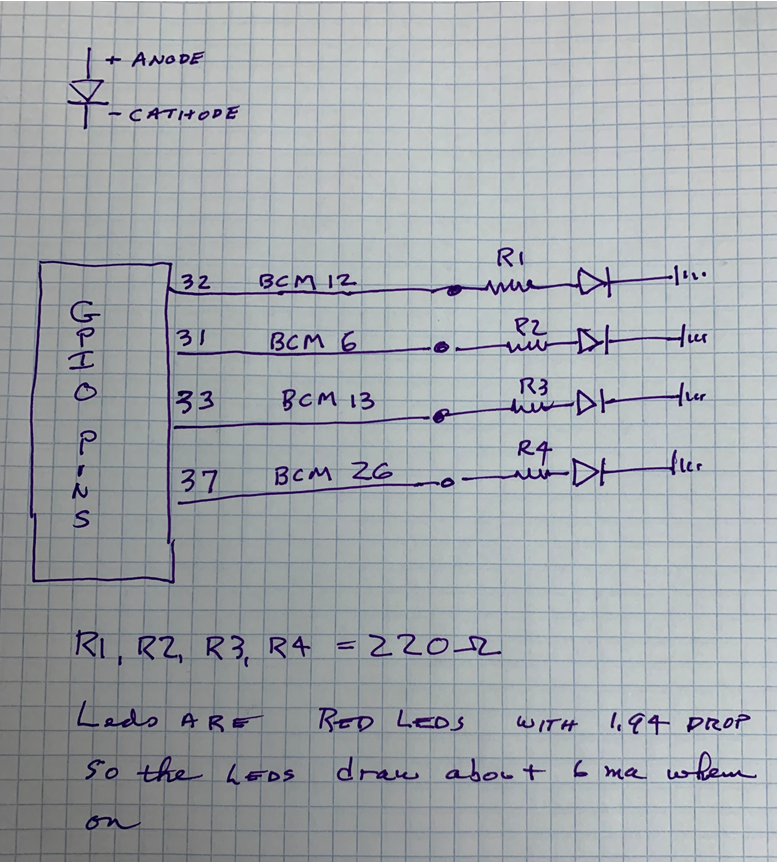 + ANODE
- CATHODE
R1
32 BCM 12
R2
31 BCM 6
R3
33 BCM 13
R4
37 BCM 26
GPIO PINS
R1, R2, R3, R4 = 220 Ω
Leds ARE RED LEDS WITH 1.94 DROP
so the LEDS draw about 6 ma when
on